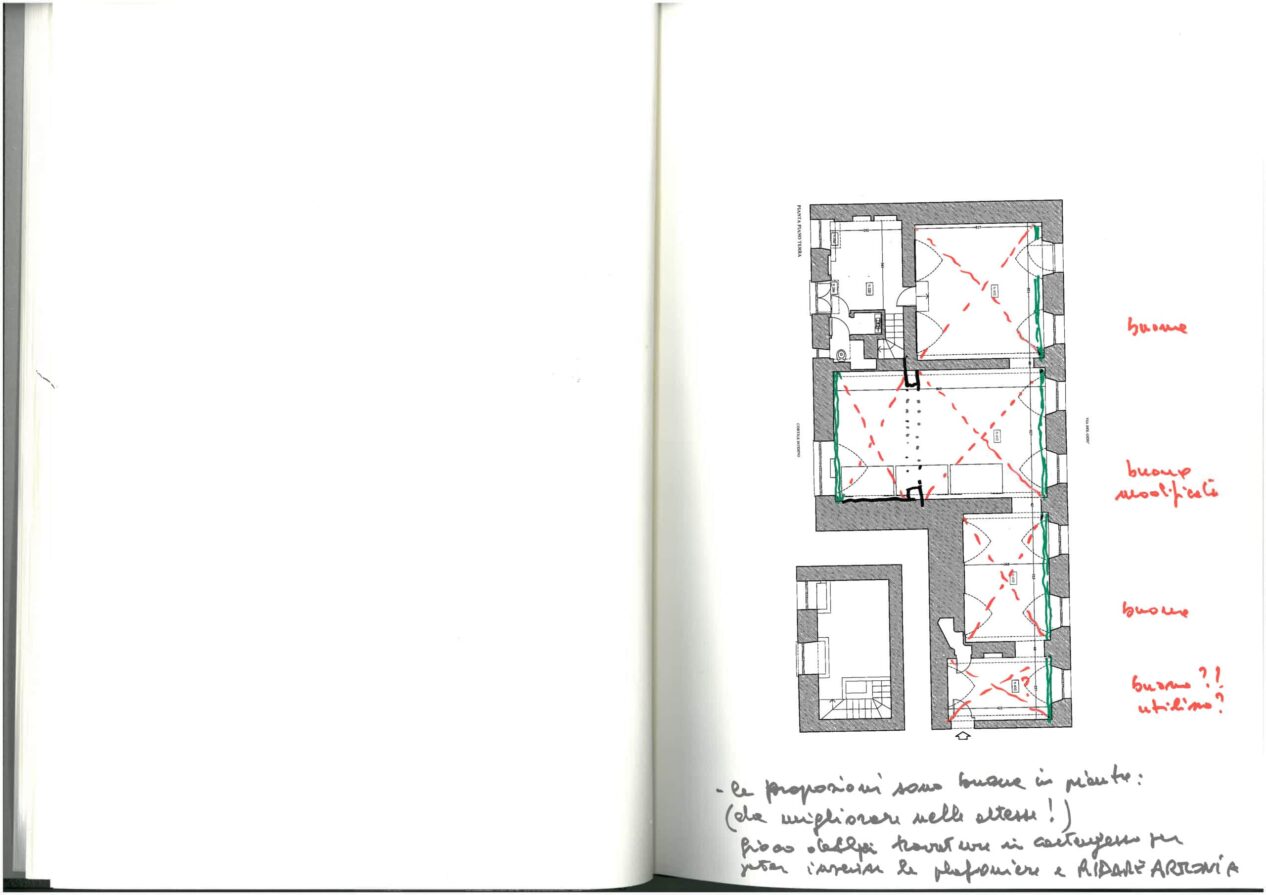 PIANTA PIANO TERRA
CORTILE INTERNO
buone
buone
modificata
buone
buono ?!
utilizzo?
?
- le proporzioni sono buone in pianta:
(da migliorare nelle altezze!)
gioco della travature in cartongesso per
poter inserire le plafoniere e RIDARE ARMONIA